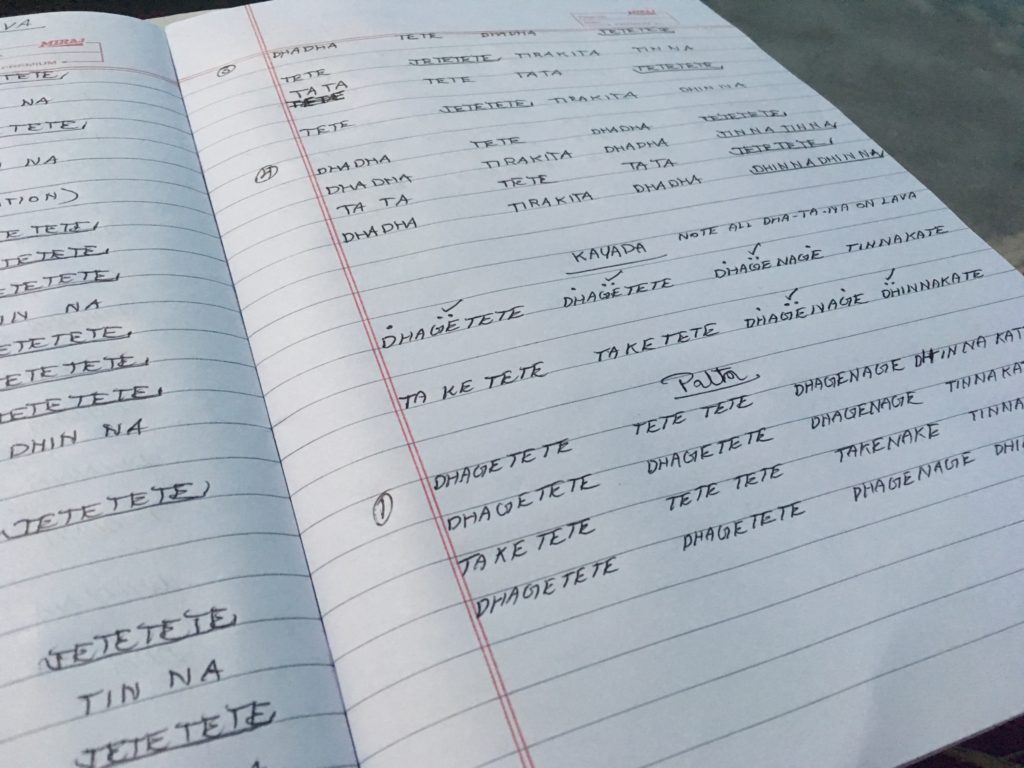 VA
MIRAJ
PREMIUM
TETE,
NA
TETE,
NA
TION)
TETE,
TETETE,
TETETE,
IN NA
TETETE,
TETETETE,
TETETETE,
DHIN NA
TETETETE,
TETETETE,
TIN NA
TETETETE,
MIRAJ
DHADHA TETE DHADHA TETETETE,
③ TETE TETETETE, TIRAKITA TIN NA
TATA TETE TATA TETETETE,
TETE
TETE TETETETE, TIRAKITA DHIN NA
④ DHADHA TETE DHADHA TETETETE,
DHADHA TIRAKITA DHADHA TINNATINNA,
TATA TETE TATA TETETETE,
DHADHA TIRAKITA DHADHA DHINNADHINNA,
KAYADA NOTE ALL DHA-TA-NA ON LAVA
DHAGETETE DHAGETETE DHAGENAGE TINNAKATE
TAKETETE TAKETETE DHAGENAGE DHINNAKATE
Palta
① DHAGETETE TETE TETE DHAGENAGE DHINNAKAT
DHAGETETE DHAGETETE DHAGENAGE TINNAKAT
TAKETETE TETE TETE TAKENAKE TINNA
DHAGETETE DHAGETETE DHAGENAGE DHI